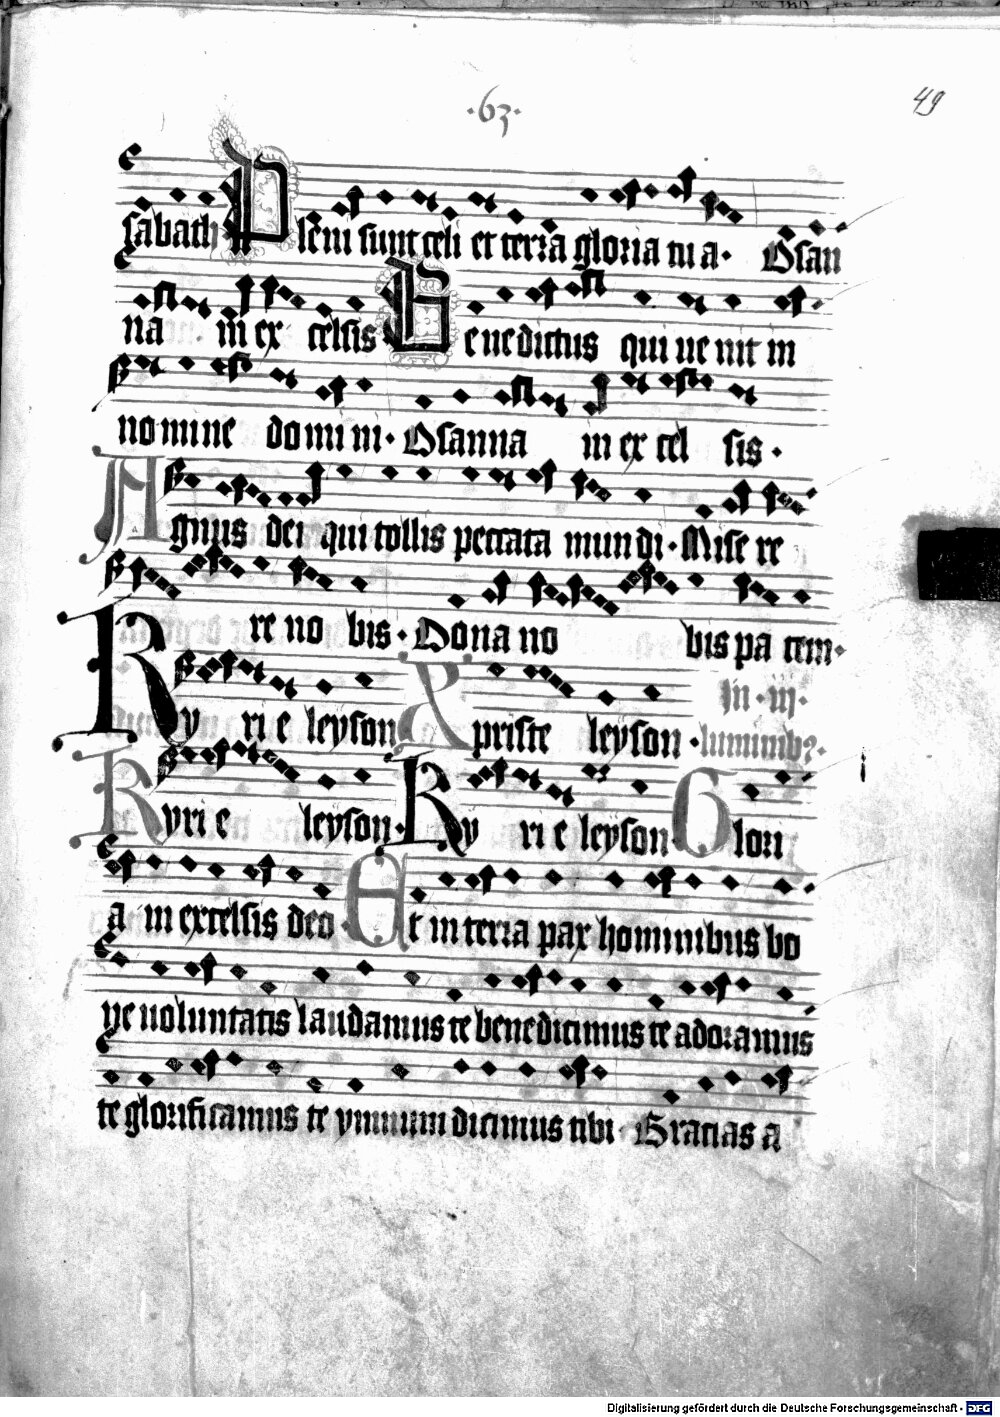 ·63·
49
sabath Pleni sunt celi et terra gloria tua· Osan
na in excelsis Benedictus qui uenit in
nomine domini· Osanna in excelsis·
Agnus dei qui tollis peccata mundi· Misere
re nobis· Dona nobis pacem·
Kyrieleyson Xpriste leyson·
Kyrie leyson· Kyrie leyson· Glori
a in excelsis deo· Et in terra pax hominibus bo
ne uoluntatis laudamus te benedicimus te adoramus
te glorificamus te ymnum dicimus tibi· Gracias a
Digitalisierung gefördert durch die Deutsche Forschungsgemeinschaft - DFG